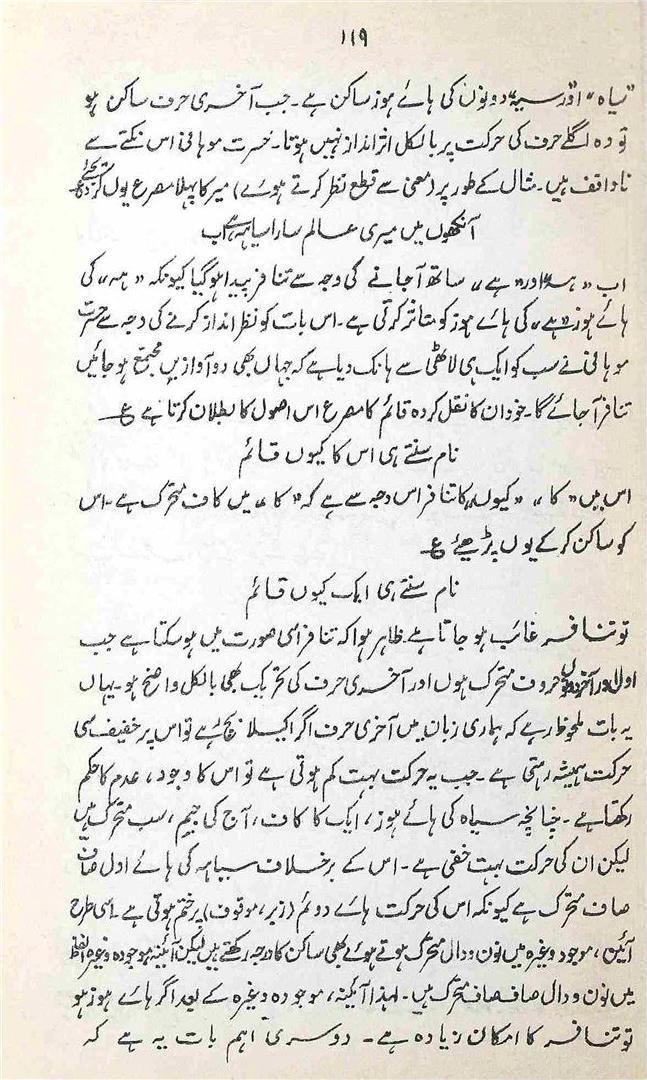 ۱۱۹
"سیاہ" اور "سیہ" دونوں کی ہائے ہوز ساکن ہے۔ جب آخری حرف ساکن ہو
تو وہ اگلے حرف کی حرکت پر بالکل اثر انداز نہیں ہوتا۔ حسرت موہانی اس نکتے سے
ناواقف ہیں۔ مثال کے طور پر (معنی سے قطع نظر کرتے ہوئے) میر کا پہلا مصرع یوں کر دیجئے ع
آنکھوں میں میری عالم سارا سیاہ ہے اب
اب "ہہ" اور "ہے" ساتھ آجانے کی وجہ سے تنافر پیدا ہوگیا کیونکہ "ہہ" کی
ہائے ہوز "ہے" کی ہائے ہوز کو متاثر کرتی ہے۔ اس بات کو نظر انداز کرنے کی وجہ سے حسرت
موہانی نے سب کو ایک ہی لاٹھی سے ہانک دیا ہے کہ جہاں بھی دو آوازیں مجتمع ہو جائیں
تنافر آجائے گا۔ خود ان کا نقل کردہ قائم کا مصرع اس اصول کا بطلان کرتا ہے ع
نام سنتے ہی اس کا کیوں قائم
اس میں "کا" "کیوں" کا تنافر اس وجہ سے ہے کہ "کا" میں کاف متحرک ہے۔ اس
کو ساکن کرکے یوں پڑھیئے ع
نام سنتے ہی ایک کیوں قائم
تو تنافر غائب ہو جاتا ہے۔ ظاہر ہوا کہ تنافر اسی صورت میں ہو سکتا ہے جب
اول اور آخر دونوں حروف متحرک ہوں اور آخری حرف کی تحریک بھی بالکل واضح ہو۔ یہاں
یہ بات ملحوظ رہے کہ ہماری زبان میں آخری حرف اگر اکیلا بچے تو اس پر خفیف سی
حرکت ہمیشہ رہتی ہے۔ جب یہ حرکت بہت کم ہوتی ہے تو اس کا وجود، عدم کا حکم
رکھتا ہے۔ چنانچہ سیاہ کی ہائے ہوز، ایک کا کاف، آج کی جیم، سب متحرک ہیں
لیکن ان کی حرکت بہت خفی ہے۔ اس کے برخلاف سیاہہ کی ہائے اول صاف
صاف متحرک ہے کیونکہ اس کی حرکت ہائے دوئم (زبر، موقوف) پر ختم ہوتی ہے۔ اسی طرح
آئین، موجود وغیرہ میں نون و دال متحرک ہوتے ہوئے بھی ساکن کا درجہ رکھتے ہیں لیکن آئینہ، موجودہ وغیرہ الفاظ
میں نون و دال صاف صاف متحرک ہیں۔ لہذا آئینہ، موجودہ وغیرہ کے بعد اگر ہائے ہوز ہو
تو تنافر کا امکان زیادہ ہے۔ دوسری اہم بات یہ ہے کہ